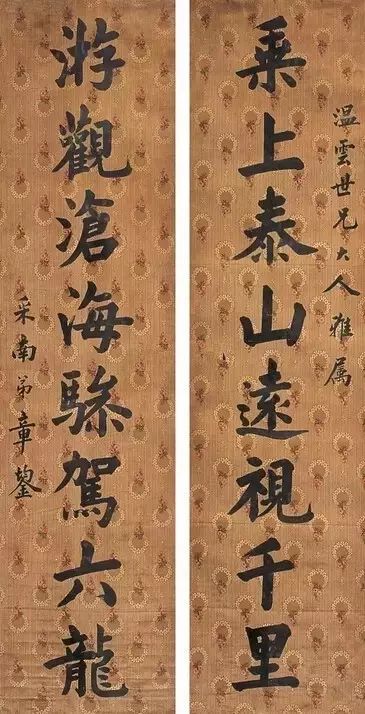 温雲世兄大人雅属
乘上泰山遠視千里
游觀滄海驂駕六龍
采南弟章鋆